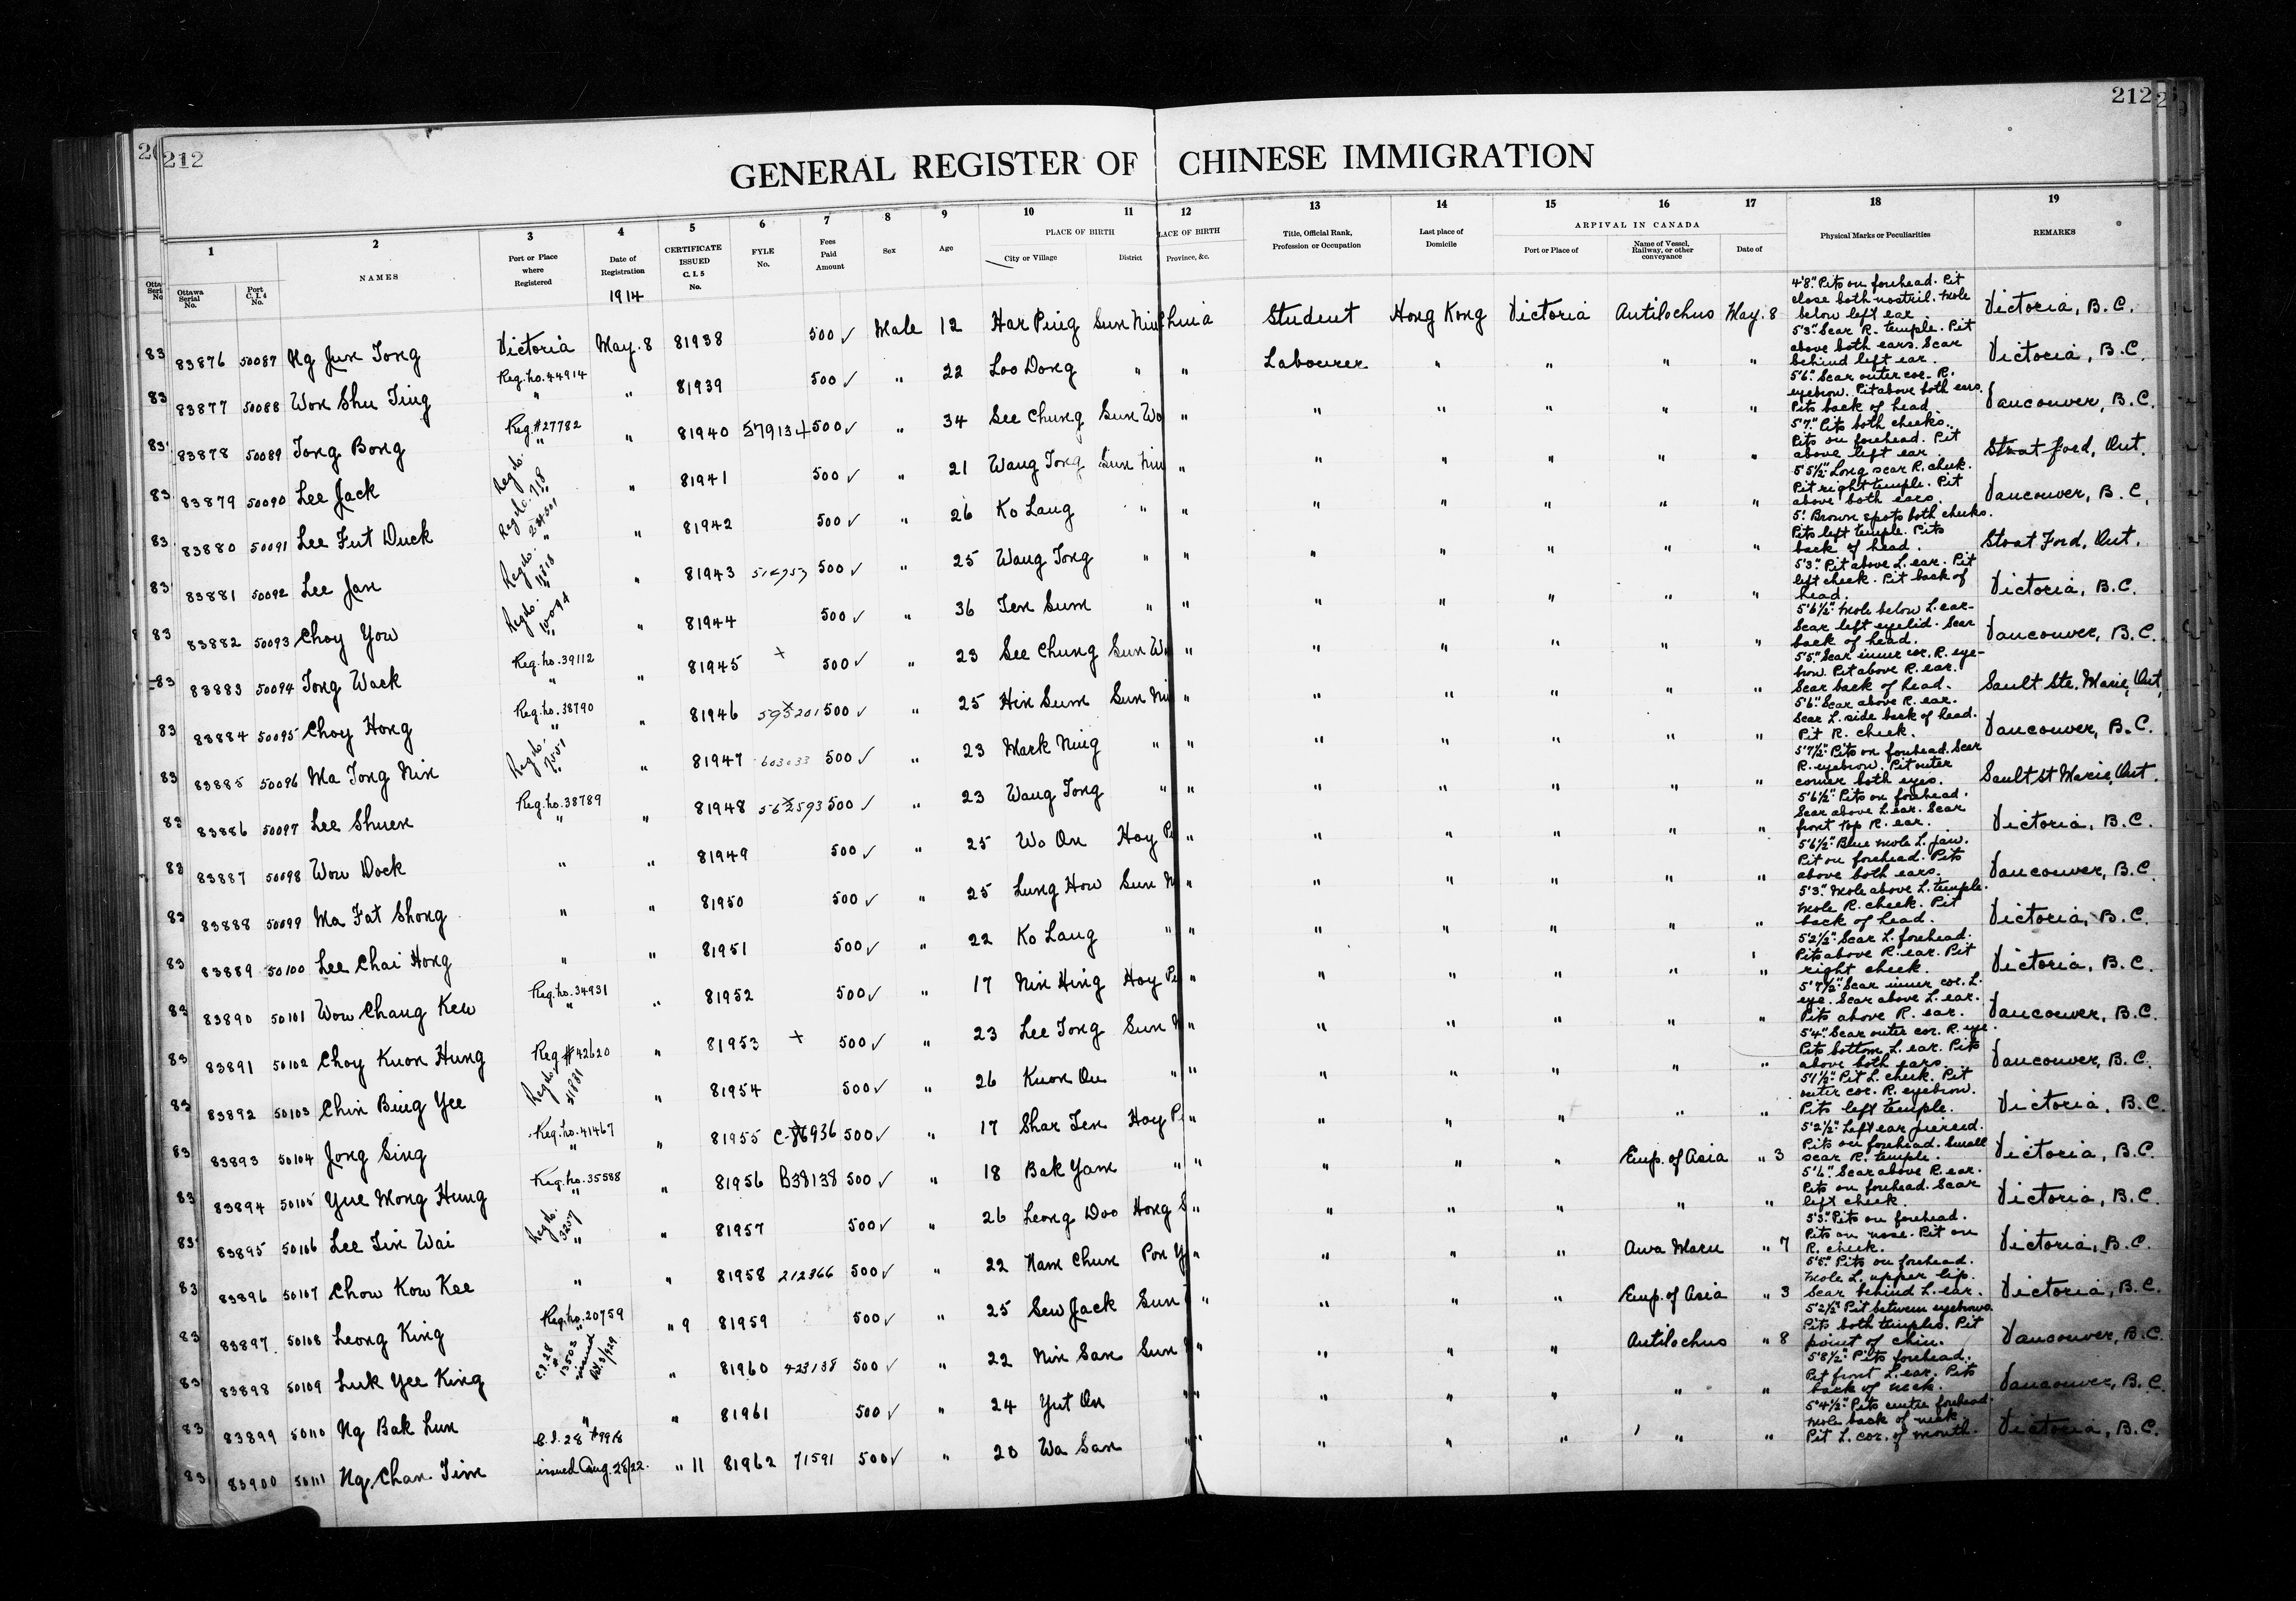 212
212
GENERAL REGISTER OF CHINESE IMMIGRATION
1 2 3 4 5 6 7 8 9 10 11 12 13 14 15 16 17 18 19
Ottawa Serial No. Port C. I. 4 No. NAMES Port or Place where Registered Date of Registration CERTIFICATE ISSUED C. I. 5 No. FYLE No. Fees Paid Amount Sex Age PLACE OF BIRTH City or Village District PLACE OF BIRTH Province, &c. Title, Official Rank, Profession or Occupation Last place of Domicile ARRIVAL IN CANADA Port or Place of Name of Vessel, Railway, or other conveyance Date of Physical Marks or Peculiarities REMARKS
1914
83876 50087 Ng Jun Tong Victoria May. 8 81938 500 ✓ Male 12 Har Ping Sun Nin China Student Hong Kong Victoria Antilochus May. 8 4'8". Pits on forehead. Pit close both nostril. Mole below left ear. Victoria, B.C.
83877 50088 Won Shu Ting Reg. no. 44914 " " 81939 500 ✓ " 22 Loo Dong " " Labourer " " " " 5'3". Scar R. temple. Pit above both ears. Scar behind left ear. Victoria, B.C.
83878 50089 Tong Bong Reg. #27782 " " 81940 579134 500 ✓ " 34 See Chung Sun Wo " " " " " " 5'6". Scar outer cor. R. eyebrow. Pit above both ears. Pits back of head. Vancouver, B.C.
83879 50090 Lee Jack Reg. No. 718 " 81941 500 ✓ " 21 Wang Tong Sun Nin " " " " " " 5'7". Pits both cheeks. Pits on forehead. Pit above left ear. Stratford, Ont.
83880 50091 Lee Fut Duck Reg. No. " " 81942 500 ✓ " 26 Ko Lang " " " " " " " 5'5½". Long scar R. cheek. Pit right temple. Pit above both ears. Vancouver, B.C.
83881 50092 Lee Jan Reg. No. " " 81943 500 ✓ " 25 Wang Tong " " " " " " " 5'. Brown spots both cheeks. Pits left temple. Pits back of head. Strat Ford, Ont.
83882 50093 Choy You Reg. No. " " 81944 500 ✓ " 36 Ten Sum " " " " " " " 5'3". Pit above L. ear. Pit left cheek. Pit back of head. Victoria, B.C.
83883 50094 Tong Wack Reg. no. 39112 " " 81945 + 500 ✓ " 23 See Chung Sun Wo " " " " " " 5'6½". Mole below L. ear. Scar left eyelid. Scar back of head. Vancouver, B.C.
83884 50095 Choy Hong Reg. no. 38790 " " 81946 595201 500 ✓ " 25 Hin Sum Sun Nin " " " " " " 5'5". Scar inner cor. R. eyebrow. Pit above R. ear. Scar back of head. Sault Ste. Marie, Ont.
83885 50096 Ma Tong Nin Reg. No. " " 81947 603033 500 ✓ " 23 Mark Ning " " " " " " " 5'6". Scar above R. ear. Scar L. side back of head. Pit R. cheek. Vancouver, B.C.
83886 50097 Lee Shuen Reg. no. 38789 " " 81948 562593 500 ✓ " 23 Wang Tong " " " " " " " 5'7½". Pits on forehead. Scar R. eyebrow. Pit outer corner both eyes. Sault St Marie, Ont.
83887 50098 Wow Dock " " 81949 500 ✓ " 25 Wo On Hoy Pi " " " " " " 5'6½". Pits on forehead. Scar above L. ear. Scar front top R. ear. Victoria, B.C.
83888 50099 Ma Fat Shong " " 81950 500 ✓ " 25 Lung How Sun N " " " " " " 5'6½". Blue mole L. jaw. Pit on forehead. Pits above both ears. Vancouver, B.C.
83889 50100 Lee Chai Hong " " 81951 500 ✓ " 22 Ko Lang " " " " " " " 5'3". Mole above L. temple. Mole R. cheek. Pit back of head. Victoria, B.C.
83890 50101 Wow Chang Kew Reg. no. 34931 " " 81952 500 ✓ " 17 Nin Hing Hoy Pi " " " " " " 5'2½". Scar L. forehead. Pits above R. ear. Pit right cheek. Victoria, B.C.
83891 50102 Choy Kuon Hung Reg #42620 " 81953 + 500 ✓ " 23 Lee Tong Sun N " " " " " " 5'7½". Scar inner cor. L. eye. Scar above L. ear. Pits above R. ear. Vancouver, B.C.
83892 50103 Chin Bing Yee Reg. No. 31881 " 81954 500 ✓ " 26 Kuon On " " " " " " " 5'4". Scar outer cor. R. eye. Pits bottom L. ear. Pits above both ears. Vancouver, B.C.
83893 50104 Jong Sing Reg. no. 41467 " " 81955 500 ✓ " 17 Shar Ten Hoy Pi " " " " " " 5'1½". Pit L. cheek. Pit outer cor. R. eyebrow. Pits left temple. Victoria, B.C.
83894 50105 Yue Mong Hung Reg. no. 35588 " " 81956 B38138 500 ✓ " 18 Bak Yam " " " " " Emp. of Asia " 3 5'2½". Left ear pierced. Pits on forehead. Small scar R. temple. Victoria, B.C.
83895 50106 Lee Tin Wai Reg. No. 3257 " " 81957 500 ✓ " 26 Leong Doo Hong S " " " " " " 5'6". Scar above R. ear. Pits on forehead. Scar left cheek. Victoria, B.C.
83896 50107 Chow Kow Kee " " 81958 212366 500 ✓ " 22 Nam Chun Pon Y " " " " Awa Maru " 7 5'3". Pits on forehead. Pits on nose. Pit on R. cheek. Victoria, B.C.
83897 50108 Leong King Reg. no. 20759 " " 9 81959 500 ✓ " 25 Sew Jack Sun " " " " Emp. of Asia " 3 5'5". Pits on forehead. Mole L. upper lip. Scar behind L. ear. Victoria, B.C.
83898 50109 Luk Yee King C.I. 28 # 13503 issued " 81960 423138 500 ✓ " 22 Nin San Sun " " " " Antilochus " 8 5'2½". Pit between eyebrows. Pits both temples. Pit point of chin. Vancouver, B.C.
83899 50110 Ng Bak Lun " " 81961 500 ✓ " 24 Yut On " " " " " " " 5'8½". Pits forehead. Pit front L. ear. Pits back of neck. Vancouver, B.C.
83900 50111 Ng Chan Tim C.I. 28 #9918 issued Aug. 28/22. " 11 81962 71591 500 ✓ " 20 Wa San " " " " " " " 5'4½". Pits centre forehead. Mole back of neck. Pit L. cor. of mouth. Victoria, B.C.